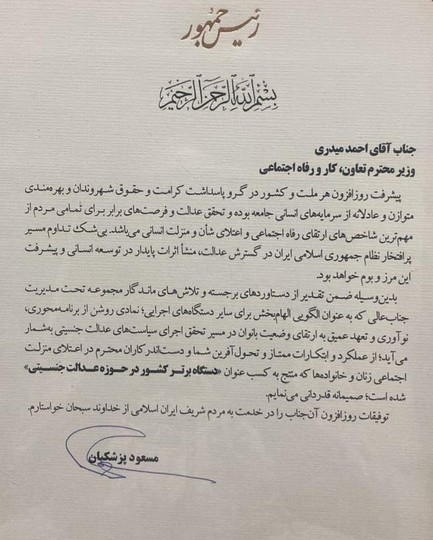 رئیس جمهور
بسم الله الرحمن الرحیم
جناب آقای احمد میدری
وزیر محترم تعاون، کار و رفاه اجتماعی
پیشرفت روزافزون هر ملت و کشور در گرو پاسداشت کرامت و حقوق شهروندان و بهره‌مندی
متوازن و عادلانه از سرمایه‌های انسانی جامعه بوده و تحقق عدالت و فرصت‌های برابر برای تمامی مردم از
مهم‌ترین شاخص‌های ارتقای رفاه اجتماعی و اعتلای شأن و منزلت انسانی می‌باشد. بی‌شک تداوم مسیر
پرافتخار نظام جمهوری اسلامی ایران در گسترش عدالت، منشأ اثرات پایدار در توسعه انسانی و پیشرفت
این مرز و بوم خواهد بود.
بدین‌وسیله ضمن تقدیر از دستاوردهای برجسته و تلاش‌های ماندگار مجموعه تحت مدیریت
جناب‌عالی که به عنوان الگویی الهام‌بخش برای سایر دستگاه‌های اجرایی؛ نمادی روشن از برنامه‌محوری،
نوآوری و تعهد عمیق به ارتقای وضعیت بانوان در مسیر تحقق اجرای سیاست‌های عدالت جنسیتی به‌شمار
می‌آید؛ از عملکرد و ابتکارات ممتاز و تحول‌آفرین شما و دست‌اندرکاران محترم در اعتلای منزلت
اجتماعی زنان و خانواده‌ها که منتج به کسب عنوان «دستگاه برتر کشور در حوزه عدالت جنسیتی»
شده است؛ صمیمانه قدردانی می‌نمایم.
توفیقات روزافزون آن‌جناب را در خدمت به مردم شریف ایران اسلامی از خداوند سبحان خواستارم.
مسعود پزشکیان